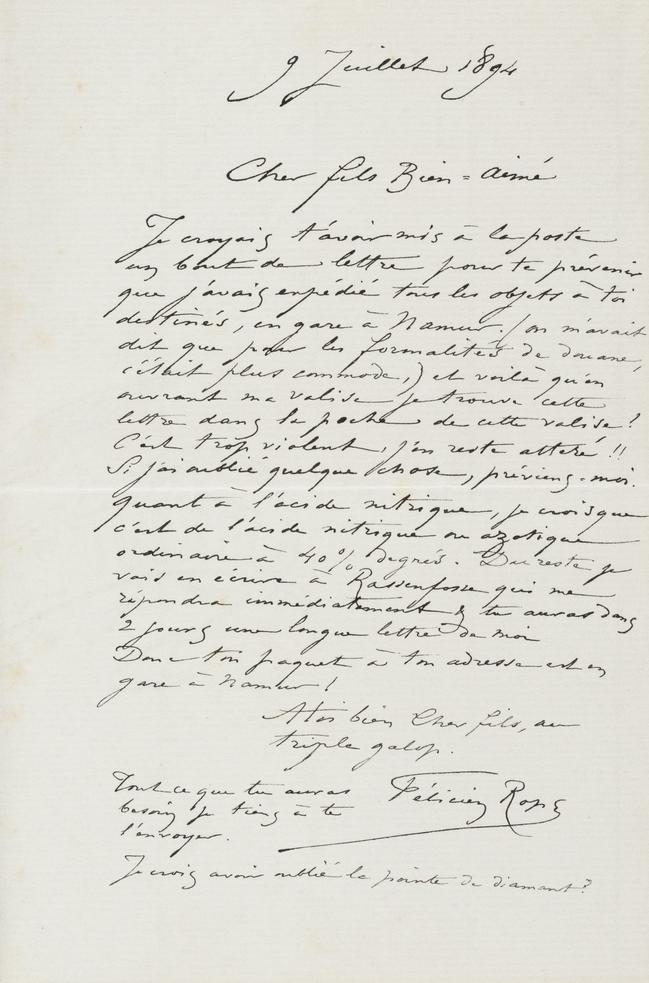 9 Juillet 1894
Cher fils Bien=aimé
Je croyais t'avoir mis à la poste
un bout de lettre pour te prévenir
que j'avais expédié tous les objets à toi
destinés, en gare à Namur. (on m'avait
dit que pour les formalités de douane,
c'était plus commode,) et voilà qu'en
ouvrant ma valise je trouve cette
lettre dans la poche de cette valise!
C'est trop violent, j'en reste atteré!!
Si j'ai oublié quelque chose, préviens-moi.
quant à l'acide nitrique, je crois que
c'est de l'acide nitrique ou azotique
ordinaire à 40% degrés. Du reste je
vais en écrire à Rassenfosse qui me
répondra immédiatement & tu auras dans
2 jours une longue lettre de moi
Donc ton paquet à ton adresse est en
gare à Namur!
A toi bien Cher fils, au
triple galop.
Félicien Rops
Tout ce que tu auras
besoin je tiens à te
l'envoyer.
Je crois avoir oublié la pointe de diamant?